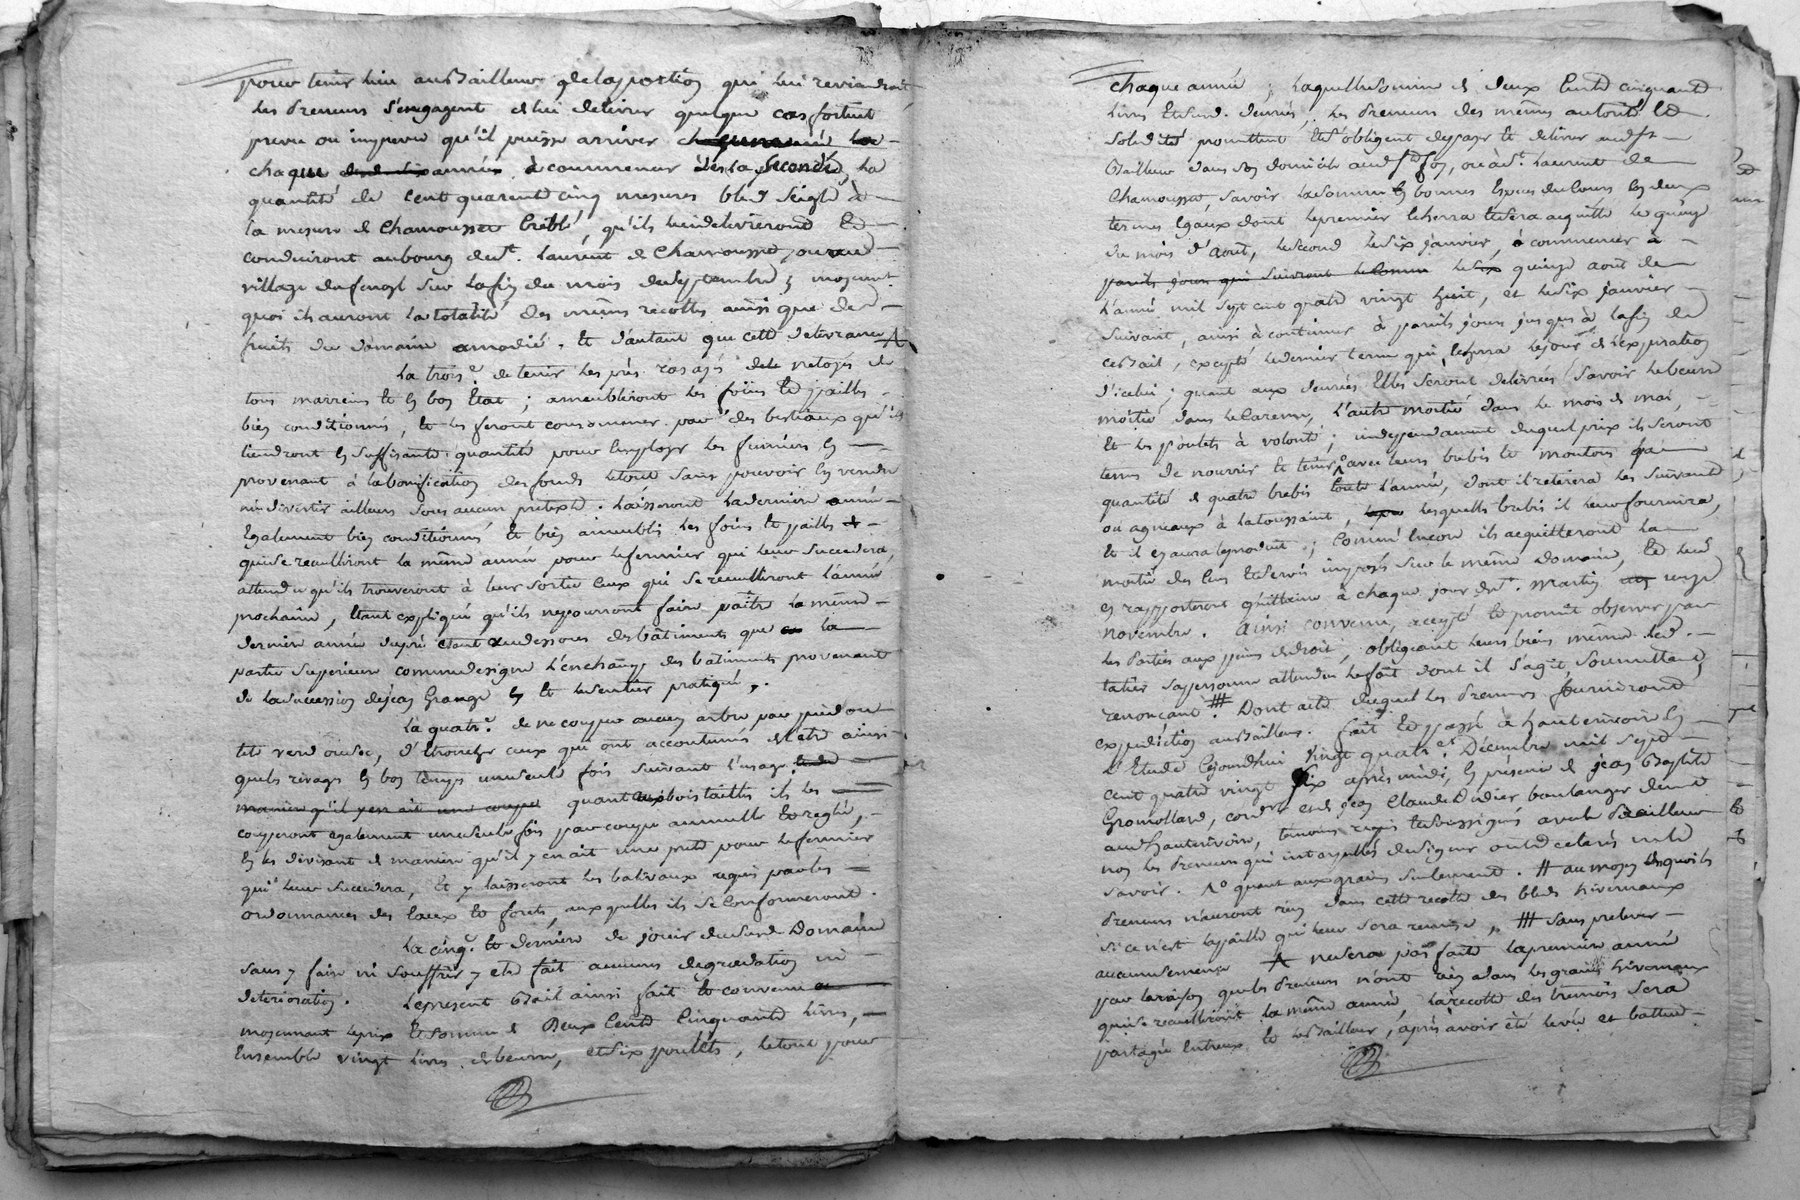 pour tenir lieu au Bailleur de la portion qui lui reviendroit
les Preneurs s'engagent de lui delivrer quelque cas fortuit
prevu ou imprevu qu'il puisse arriver
chaque année, à commencer dès la seconde, la
quantité de cent quarente cinq mesures bled seigle à
la mesure de Chamousset criblé, qu'ils lui delivreront et
conduiront au bourg de St. Laurent de Chamousset, ou au
village du sur la fin du mois de septembre, moyennt.
quoi ils auront la totalité des mêmes recoltes ainsi que des
fruits du domaine amodié. et d'autant que cette delivrance A
La trois.e de tenir les prés rasés et netoyés de
tous marreins et en bon état ; ameubleront les foins et pailles
bien conditionnés, et les feront consommer par des bestiaux qu'ils
tiendront en suffisante quantité pour employer les fumiers en
provenant à la bonification des fonds le tout sans pouvoir en vendre
ni divertir ailleurs sous aucun pretexte. Laisseront la derniere année
également bien conditionnés et bien ameublis les foins et pailles
qui se recuilliront la même année pour le fermier qui leur succedera,
attendu qu'ils trouveront à leur sortie ceux qui se recuilliront l'année
prochaine, étant expliqué qu'ils ne pourront faire paître la même
derniere année du pré étant au dessous des bâtiments que la
partie superieure comme designe des bâtiments provenant
de la succession de Jean Grange et le sentier pratiqué.
La quatr.e de ne couper aucun arbre par pied ou
tête verd ou sec, d'étroncher ceux qui ont accoutumés d'etre ainsi
quels rivages en bon temps une seule fois suivant l'usage
maniere qu'il y en ait une coupe quant aux bois taillis ils les
couperont également une seule fois par coupe annuelle et reglée,
en les divisant de maniere qu'il y en ait une prete pour le fermier
qui leur succedera, et y laisseront les balivaux requis par les
ordonnances des eaux et forets, auxquelles ils se conformeront.
La cinq.e et derniere de jouir dudit Domaine
sans y faire ni souffrir y etre fait aucunes degradations ni
deterioration. Le present Bail ainsi fait et convenu
moyennant le prix et somme de Deux Cents Cinquante livres,
ensemble vingt livres de beurre, et six poulets, le tout pour
chaque année ; laquelle somme de deux cents cinquante
livres et lesd. denrées, les Preneurs des mêmes autorité et
solidité promettent et s'obligent de payer et delivrer audit
Bailleur dans son domicile, ou à St. Laurent de
Chamousset, savoir la somme en bonnes especes du cours en deux
termes égaux dont le premier écherra et sera acquitté le quinze
du mois d'aout, le second le six janvier, à commencer à
pareils jours qui suivront le quinze aout de
l'année mil sept cent quatre vingt huit, et le six janvier
suivant, ainsi à continuer à pareils jours jusques à la fin de
ce Bail, excepté le dernier terme qui echerra le jour de l'expiration
d'icelui ; quant aux denrées elles seront delivrées savoir le beurre
moitié dans le Careme, l'autre moitié dans le mois de mai,
et les poulets à volonté ; independament duquel prix ils seront
tenus de nourrir et tenir avec leurs brebis et moutons
quantité de quatre brebis toute l'année, dont il retirera les suivants
ou agneaux à la toussaint, lesquelles brebis il leur fournira,
et il en aura le produit ; Comme encore ils acquitteront la
moitié des cens et servis imposés sur le même domaine, et leur
en rapporteront quittance à chaque jour de St. Martin onze
novembre. Ainsi convenu, accepté et promit observer par
les Parties aux peines de droit, obligeant leurs biens même led.
sa personne attendu le fait dont il s'agit, soumettant,
renonçant # Dont acte duquel les Preneurs fourniront
expedition au Bailleur. Fait et passé à hauterivoire en
l'Etude Cejourdhui vingt quatre Décembre mil sept
cent quatre vingt six après midi, en présence de jean Baptiste
Gromollard, cordr. et de jean Claude Didier boulanger demt.
aud. hauterivoire, temoins requis et soussignés avec le Bailleur
non les Preneurs qui interpellés de signer ont declarés ne le
savoir. quant aux grains seulement. # au moyen desquoi les
Preneurs n'auront rien dans cette recolte des bleds hivernaux
si ce n'est la paille qui leur sera remise, # sans prelever
aucune semence A ne sera pas faite la premiere année
par la raison que les Preneurs n'ont rien dans les grains hivernaux
qui se recuilliront la même année. La recolte des tremois sera
partagée entreux et le Bailleur, après avoir été levée et battue.